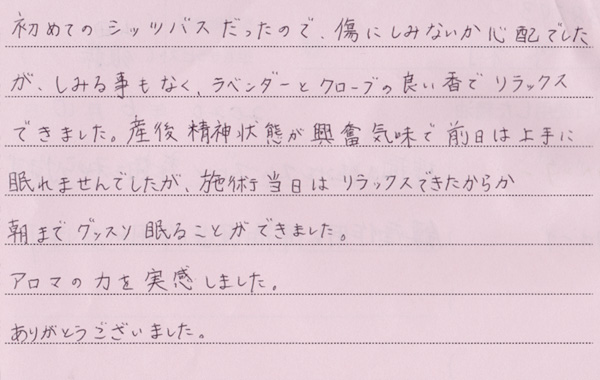 初めてのシッツバスだったので、傷にしみないか心配でした
が、しみる事もなく、ラベンダーとクローブの良い香でリラックス
できました。産後精神状態が興奮気味で前日は上手に
眠れませんでしたが、施術当日はリラックスできたからか
朝までグッスリ眠ることができました。
アロマの力を実感しました。
ありがとうございました。